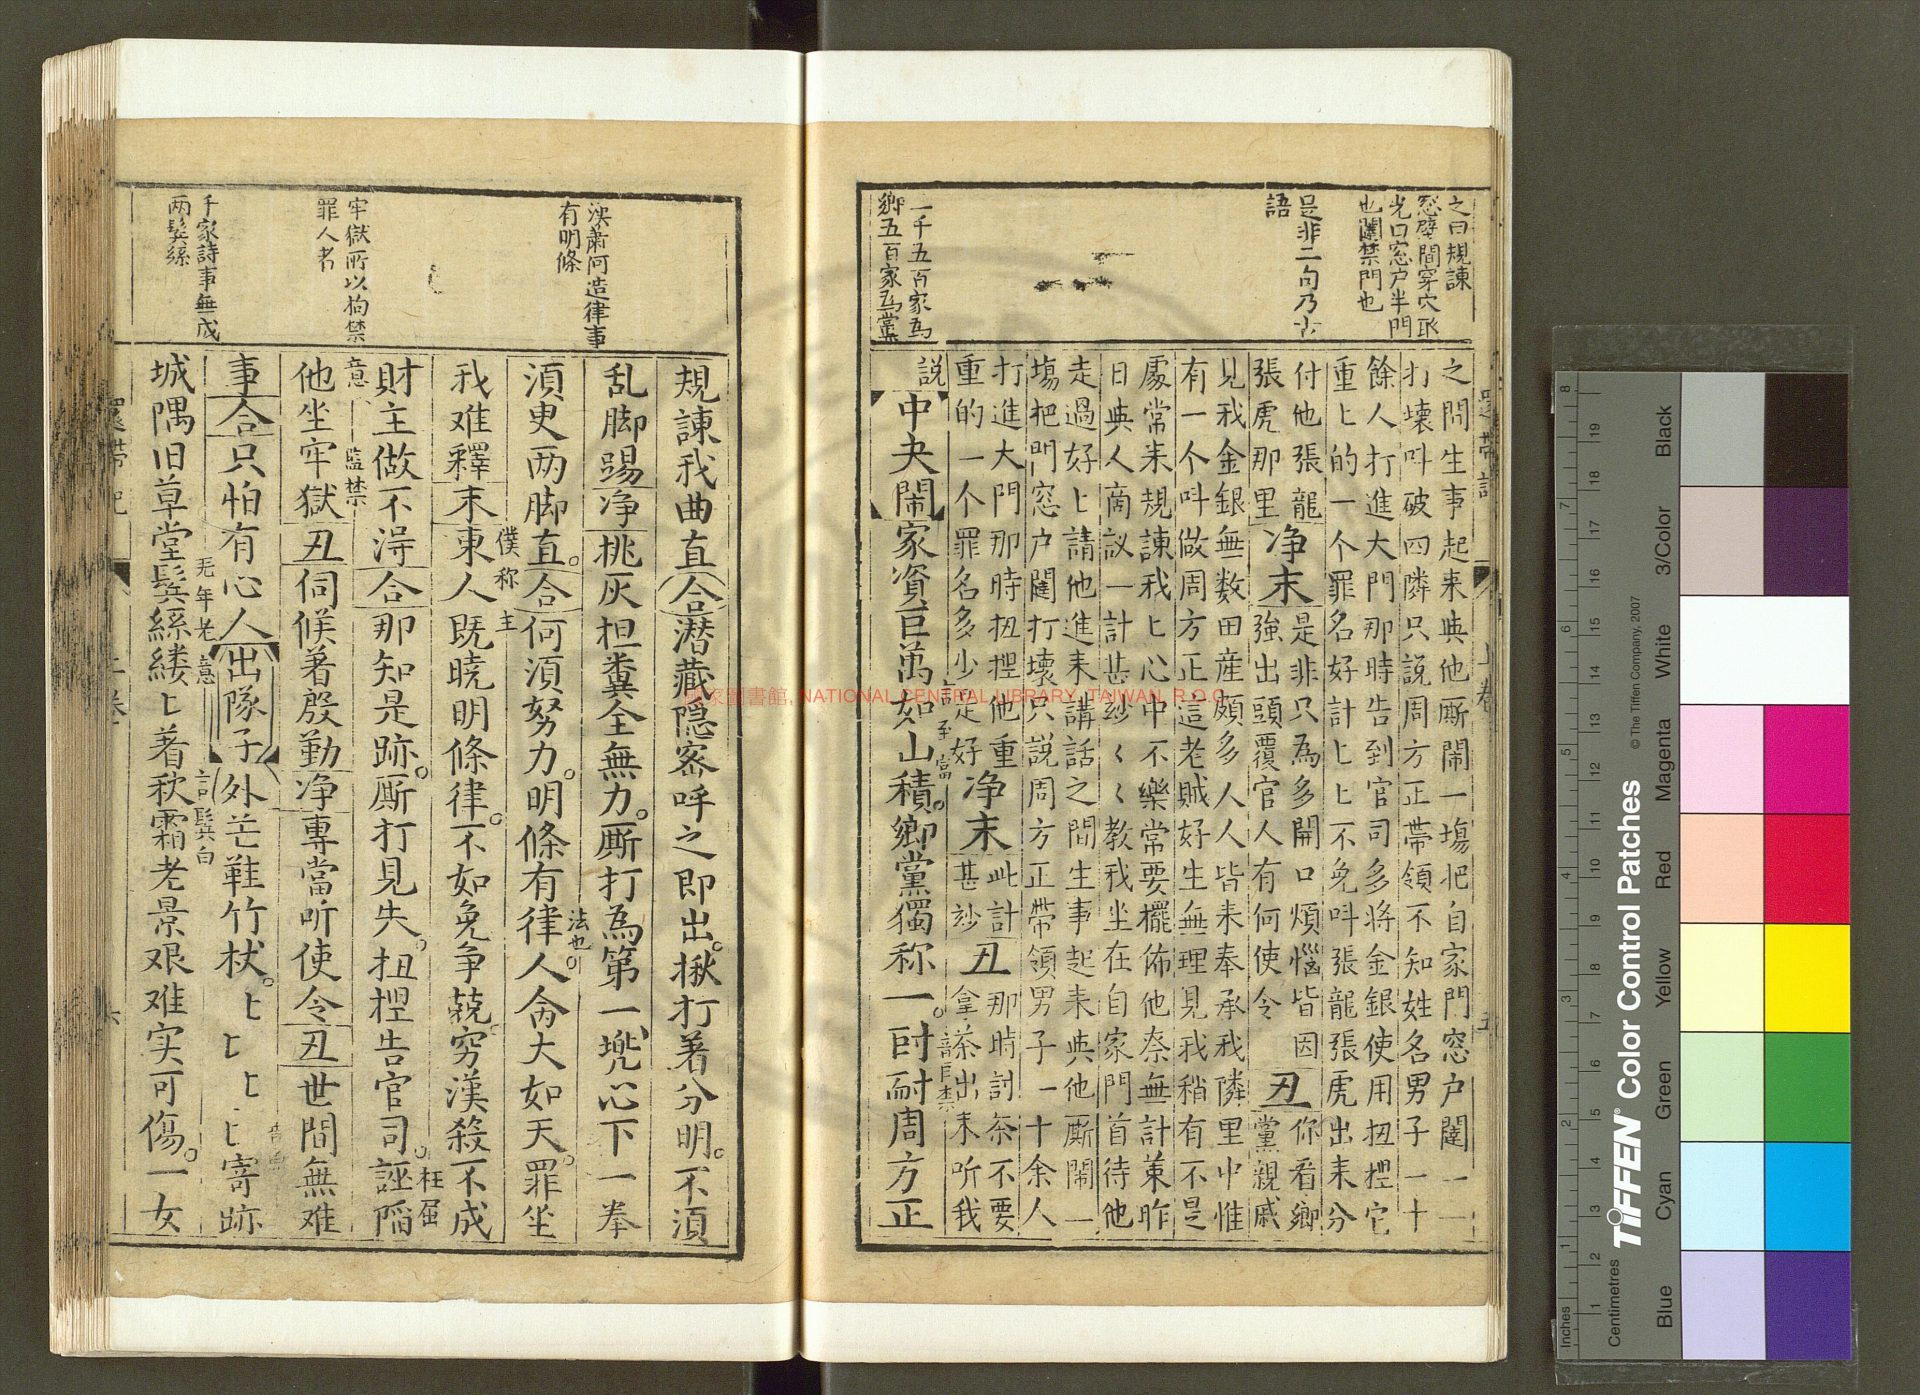 之曰規諫
窓壁間穿穴取
光曰窓戶半門
也闥禁門也
是非二句乃古
語
一千五百家為
鄉五百家為黨
之間生事起来與他厮鬧一塲把自家門窓戶闥一一
打壞叫破四隣只說周方正帶領不知姓名男子一十
餘人打進大門那時告到官司多将金銀使用扭捏它
重匕的一个罪名好計匕匕不免叫張龍張虎出来分
付他張龍
張虎那里
净末
是非只為多開口煩惱皆因
強出頭覆官人有何使令
丑
你看鄉
黨親戚
見我金銀無数田産頗多人人皆来奉承我隣里中惟
有一个叫做周方正這老賊好生無理見我稍有不是
處常来規諫我匕心中不樂常要擺佈他奈無計策昨
日與人商議一計甚妙々々教我坐在自家門首待他
走過好匕請他進来講話之間生事起来與他厮鬧一
塲把門窓户闥打壞只說周方正帶領男子一十余人
打進大門那時扭捏他重
重的一个罪名多少是好
净末
此計
甚妙
丑
那時討茶不要
拿茶出来听我
說
中央鬧
家資巨萬如山積。鄉黨獨称一。时耐周方正
還帶記
上卷
五
泱蕭何造律事
有明條
牢獄所以拘禁
罪人者
千家詩事無成
两鬂絲
規諫我曲直合潜藏隐密呼之即出。揪打著分明。不湏
乱脚踢净挑灰担糞全無力。厮打為第一。攪心下一拳
湏更两脚直。合何湏努力。明條有律人侖大如天。罪坐
法也
我难釋末東人既晓明條律。不如免争競。穷漢殺不成
僕称主
財主做不淂合那知是跡。厮打見失。扭捏告官司。誣陷
枉屈
他坐牢獄丑伺候着殷勤净專當听使令丑世間無难
意
監禁
事合只怕有心人
出隊子
外芒鞋竹杖。匕匕匕匕寄跡
城隅旧草堂鬂絲縷匕着秋霜老景艰难实可傷。一女
无年老意
言鬂白